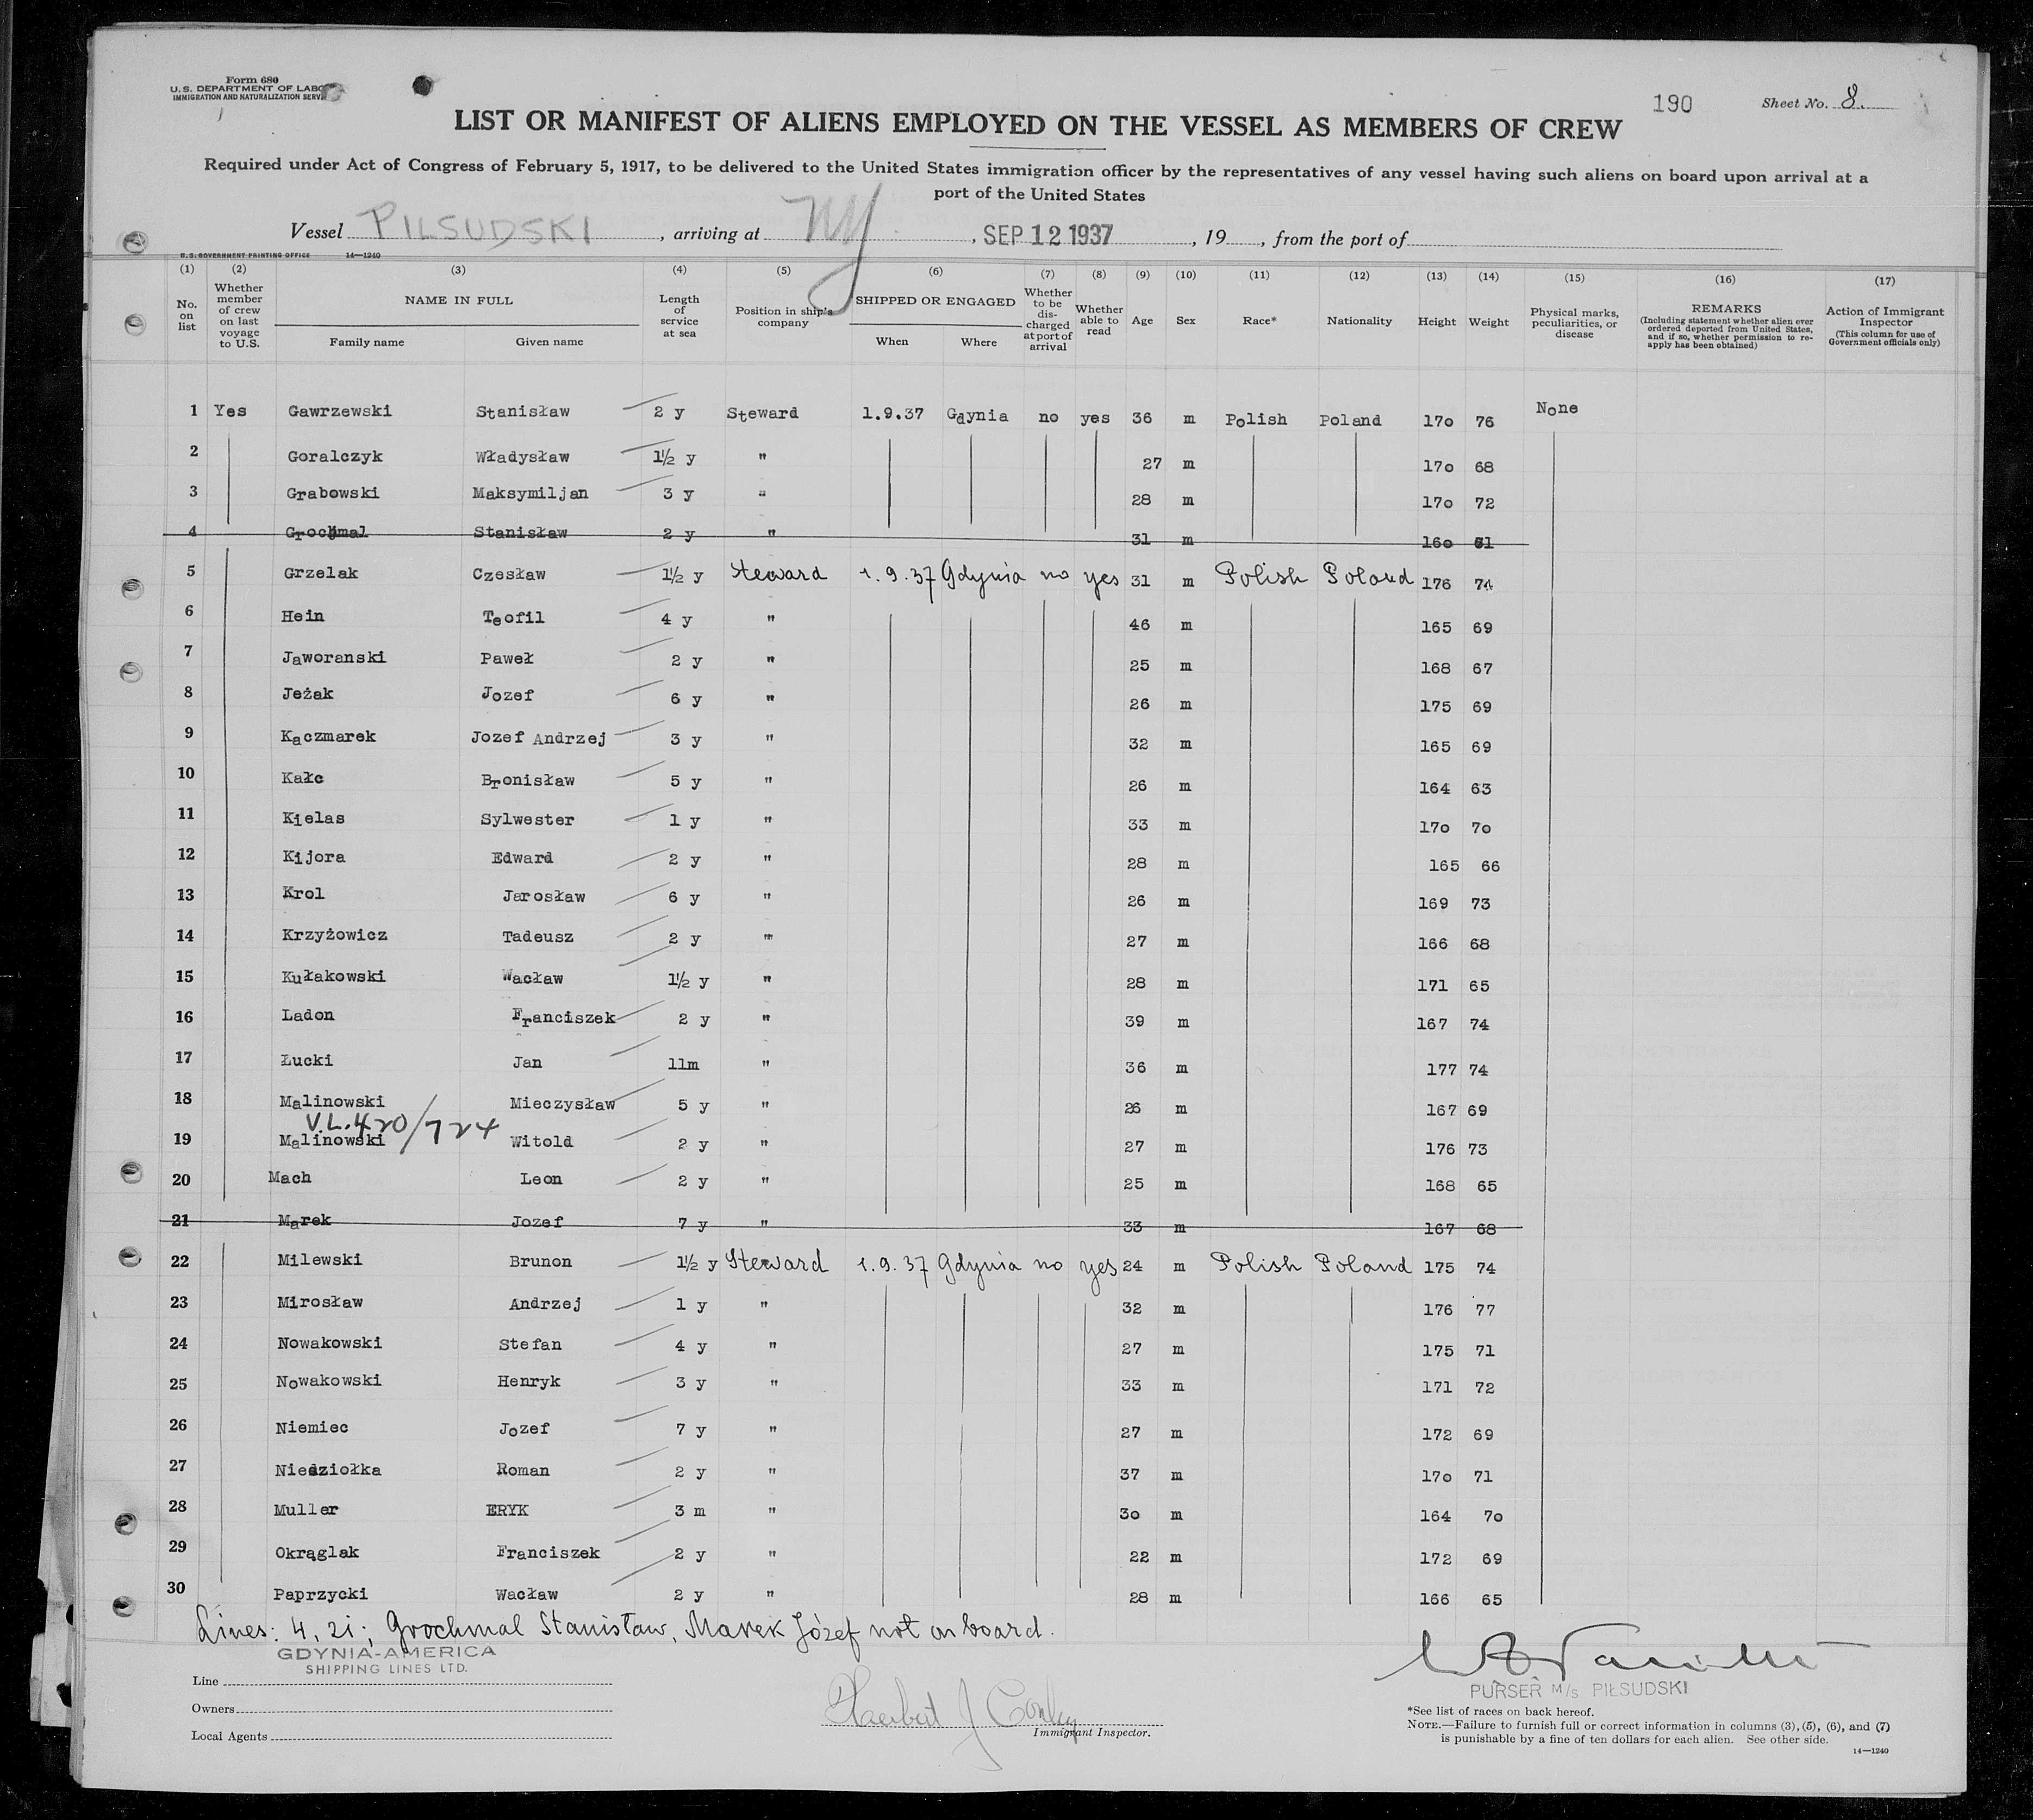 Form 680
U. S. DEPARTMENT OF LABO
IMMIGRATION AND NATURALIZATION SERVI
190
Sheet No. 8.
LIST OR MANIFEST OF ALIENS EMPLOYED ON THE VESSEL AS MEMBERS OF CREW
Required under Act of Congress of February 5, 1917, to be delivered to the United States immigration officer by the representatives of any vessel having such aliens on board upon arrival at a
port of the United States
Vessel PILSUDSKI, arriving at NY, SEP 12 1937, 19, from the port of
U. S. GOVERNMENT PRINTING OFFICE 14—1240
(1) (2) (3) (4) (5) (6) (7) (8) (9) (10) (11) (12) (13) (14) (15) (16) (17)
No. on list
Whether member of crew on last voyage to U.S.
NAME IN FULL
Family name Given name
Length of service at sea
Position in ship's company
SHIPPED OR ENGAGED
When Where
Whether to be discharged at port of arrival
Whether able to read
Age Sex Race* Nationality Height Weight
Physical marks, peculiarities, or disease
REMARKS
(Including statement whether alien ever ordered deported from United States, and if so, whether permission to re-apply has been obtained)
Action of Immigrant Inspector
(This column for use of Government officials only)
1 Yes Gawrzewski Stanisław 2 y Steward 1.9.37 Gdynia no yes 36 m Polish Poland 170 76 None
2 Goralczyk Władysław 1½ y " 27 m 170 68
3 Grabowski Maksymiljan 3 y " 28 m 170 72
4 Grochmal Stanisław 2 y " 31 m 160 61
5 Grzelak Czesław 1½ y Steward 1.9.37 Gdynia no yes 31 m Polish Poland 176 74
6 Hein Teofil 4 y " 46 m 165 69
7 Jaworanski Paweł 2 y " 25 m 168 67
8 Jeżak Jozef 6 y " 26 m 175 69
9 Kaczmarek Jozef Andrzej 3 y " 32 m 165 69
10 Kałc Bronisław 5 y " 26 m 164 63
11 Kielas Sylwester 1 y " 33 m 170 70
12 Kijora Edward 2 y " 28 m 165 66
13 Krol Jarosław 6 y " 26 m 169 73
14 Krzyżowicz Tadeusz 2 y " 27 m 166 68
15 Kułakowski Wacław 1½ y " 28 m 171 65
16 Ladon Franciszek 2 y " 39 m 167 74
17 Łucki Jan 11m " 36 m 177 74
18 Malinowski Mieczysław 5 y " 26 m 167 69
V.L.420/724
19 Malinowski Witold 2 y " 27 m 176 73
20 Mach Leon 2 y " 25 m 168 65
21 Marek Jozef 7 y " 33 m 167 68
22 Milewski Brunon 1½ y Steward 1.9.37 Gdynia no yes 24 m Polish Poland 175 74
23 Mirosław Andrzej 1 y " 32 m 176 77
24 Nowakowski Stefan 4 y " 27 m 175 71
25 Nowakowski Henryk 3 y " 33 m 171 72
26 Niemiec Jozef 7 y " 27 m 172 69
27 Niedziołka Roman 2 y " 37 m 170 71
28 Muller ERYK 3 m " 30 m 164 70
29 Okrąglak Franciszek 2 y " 22 m 172 69
30 Paprzycki Wacław 2 y " 28 m 166 65
Lines: 4, 21; Grochmal Stanisław, Marek Józef not on board.
GDYNIA-AMERICA
SHIPPING LINES LTD.
Line
Owners
Local Agents
Herbert J Conley
Immigrant Inspector.
PURSER M/s PIŁSUDSKI
*See list of races on back hereof.
NOTE.—Failure to furnish full or correct information in columns (3), (5), (6), and (7)
is punishable by a fine of ten dollars for each alien. See other side.
14—1240